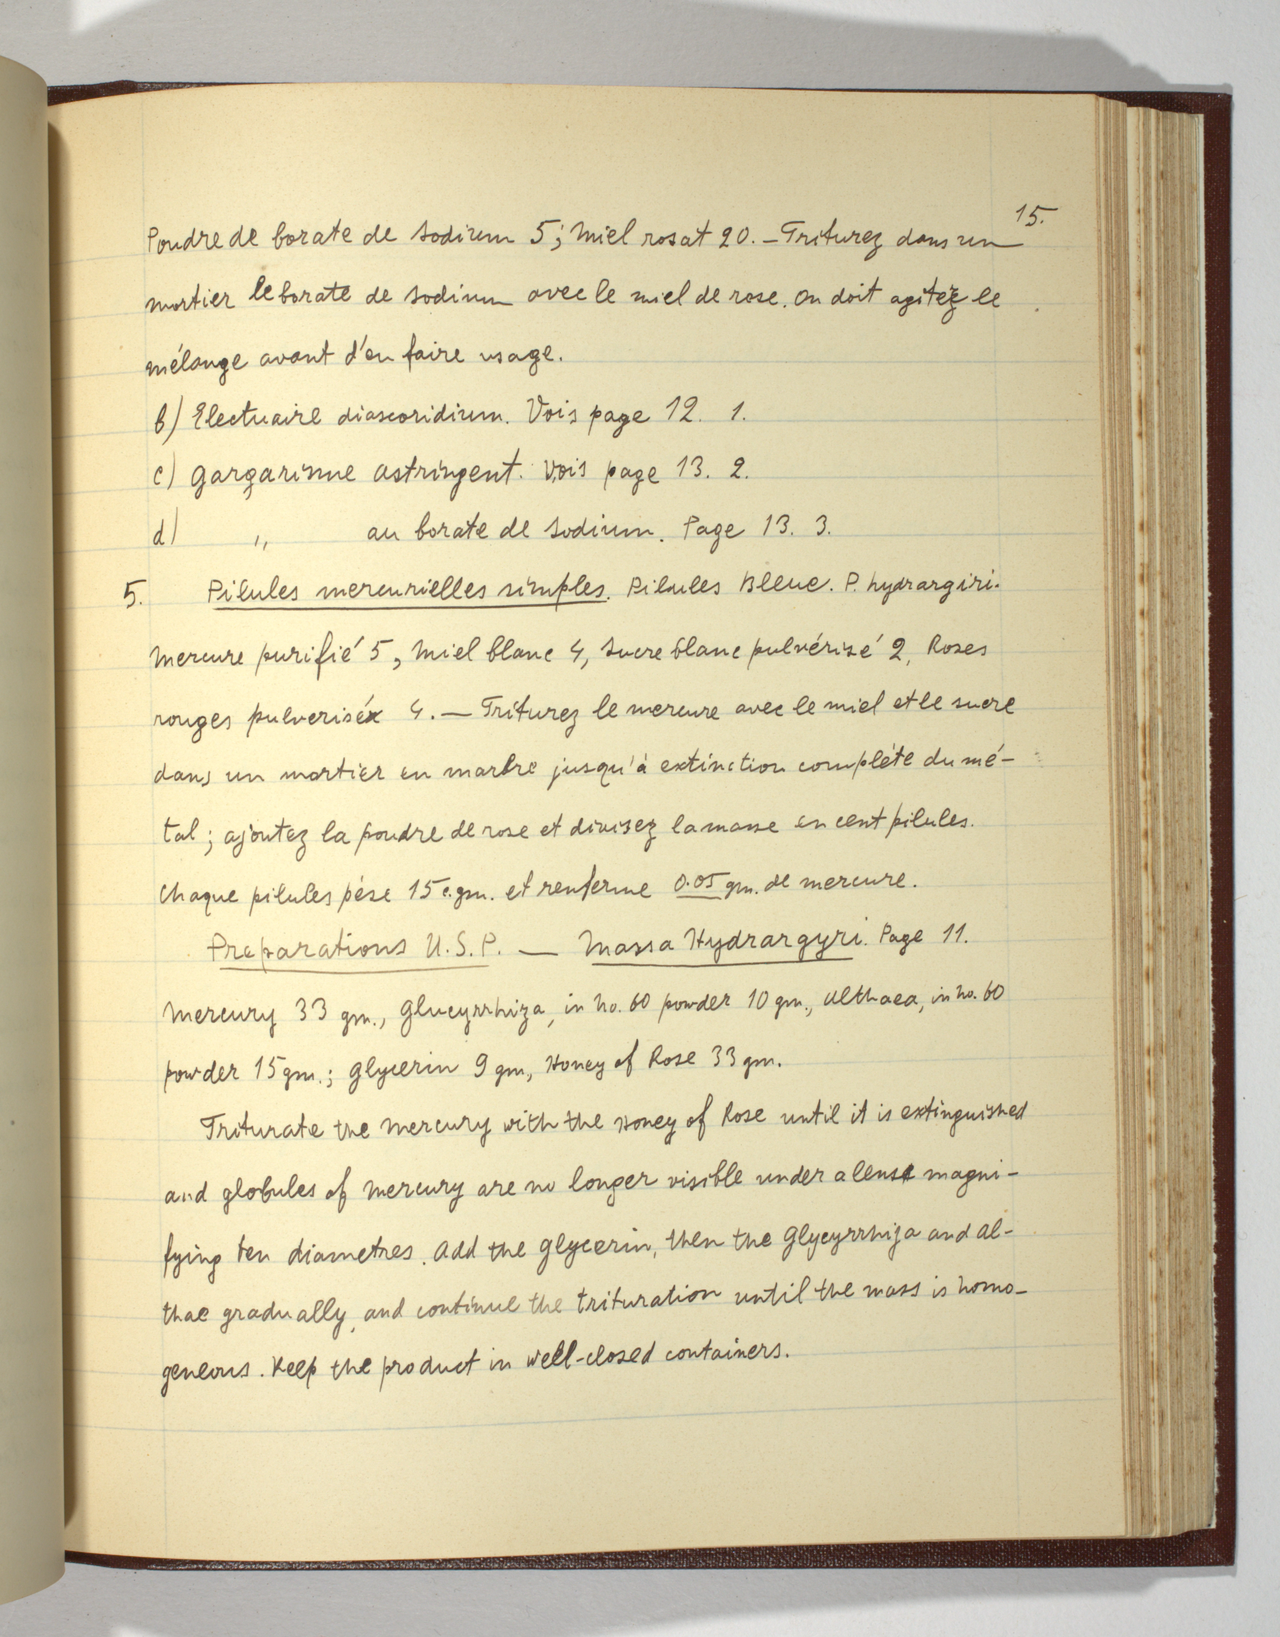 15.
Poudre de borate de sodium 5; Miel rosat 20. — Triturez dans un
mortier le borate de sodium avec le miel de rose. On doit agitez le
mélange avant d'en faire usage.
b) Electuaire diascoridium. Vois page 12. 1.
c) Gargarisme astringent. Vois page 13. 2.
d) ,, au borate de sodium. Page 13. 3.
5. Pilules mercurielles simples. Pilules Bleue. P. hydrargiri.
Mercure purifié 5, Miel blanc 4, Sucre blanc pulvérisé 2, Roses
rouges pulverisé 4. — Triturez le mercure avec le miel et le sucre
dans un mortier en marbre jusqu'à extinction complète du mé-
tal; ajoutez la poudre de rose et divisez la masse en cent pilules.
Chaque pilules pèse 15 c.gm. et renferme 0.05 gm. de mercure.
Preparations U.S.P. — Massa Hydrargyri. Page 11.
Mercury 33 gm., Glucyrrhiza, in no. 60 powder 10 gm., Althaea, in no. 60
powder 15 gm.; Glycerin 9 gm, Honey of Rose 33 gm.
Triturate the mercury with the Honey of Rose until it is extinguished
and globules of mercury are no longer visible under a lens magni-
fying ten diametres. Add the glycerin, then the Glycyrrhiza and al-
thae gradually, and continue the trituration until the mass is homo-
geneous. Keep the product in well-closed containers.